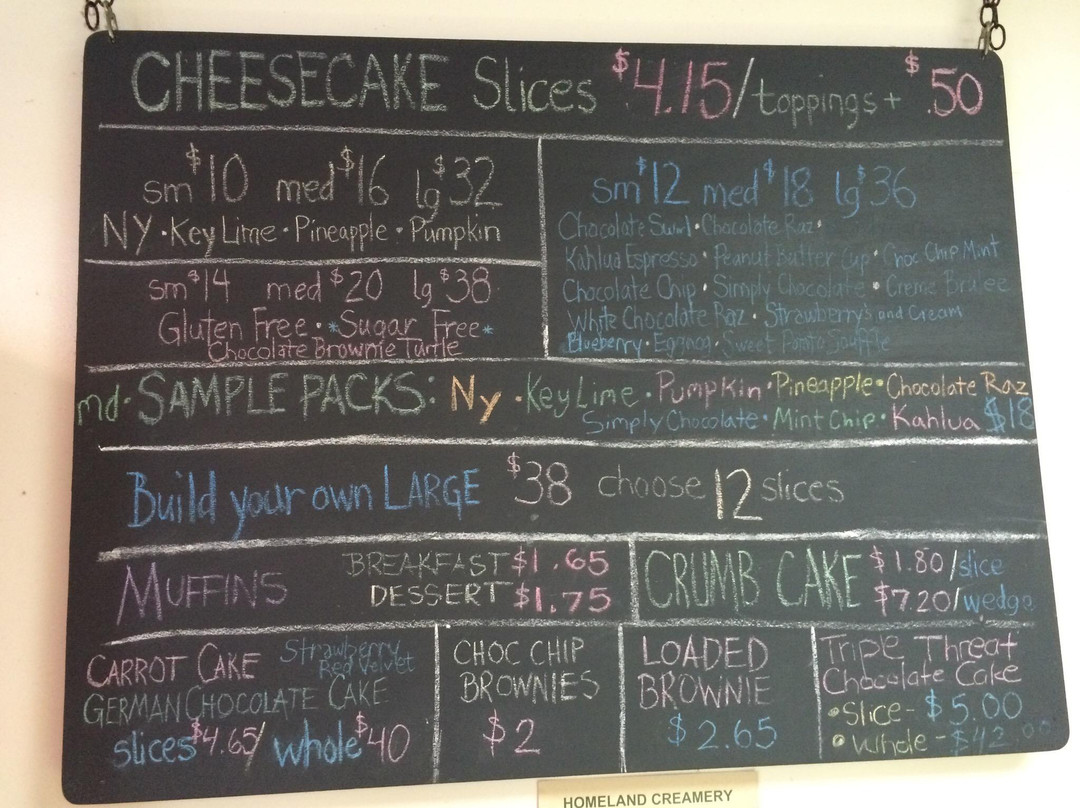 CHEESECAKE Slices $4.15/toppings + $.50
sm $10 med $16 lg $32
NY · Key Lime · Pineapple · Pumpkin
sm $14 med $20 lg $38
Gluten Free · *Sugar Free*
Chocolate Brownie Turtle
sm $12 med $18 lg $36
Chocolate Swirl · Chocolate Raz ·
Kahlua Espresso · Peanut Butter Cup · Choc Chip Mint
Chocolate Chip · Simply Chocolate · Creme Brulee
White Chocolate Raz · Strawberry's and Cream
Blueberry · Eggnog · Sweet Potato Souffle
md · SAMPLE PACKS: Ny · Key Lime · Pumpkin · Pineapple · Chocolate Raz
Simply Chocolate · Mint Chip · Kahlua $18
Build your own LARGE $38 choose 12 slices
MUFFINS
BREAKFAST $1.65
DESSERT $1.75
CRUMB CAKE
$1.80/slice
$7.20/wedge
CARROT CAKE
Strawberry
Red Velvet
GERMAN CHOCOLATE CAKE
slices $4.65/ whole $40
CHOC CHIP
BROWNIES
$2
LOADED
BROWNIE
$2.65
Triple Threat
Chocolate Cake
• Slice - $5.00
• Whole - $42.00
HOMELAND CREAMERY